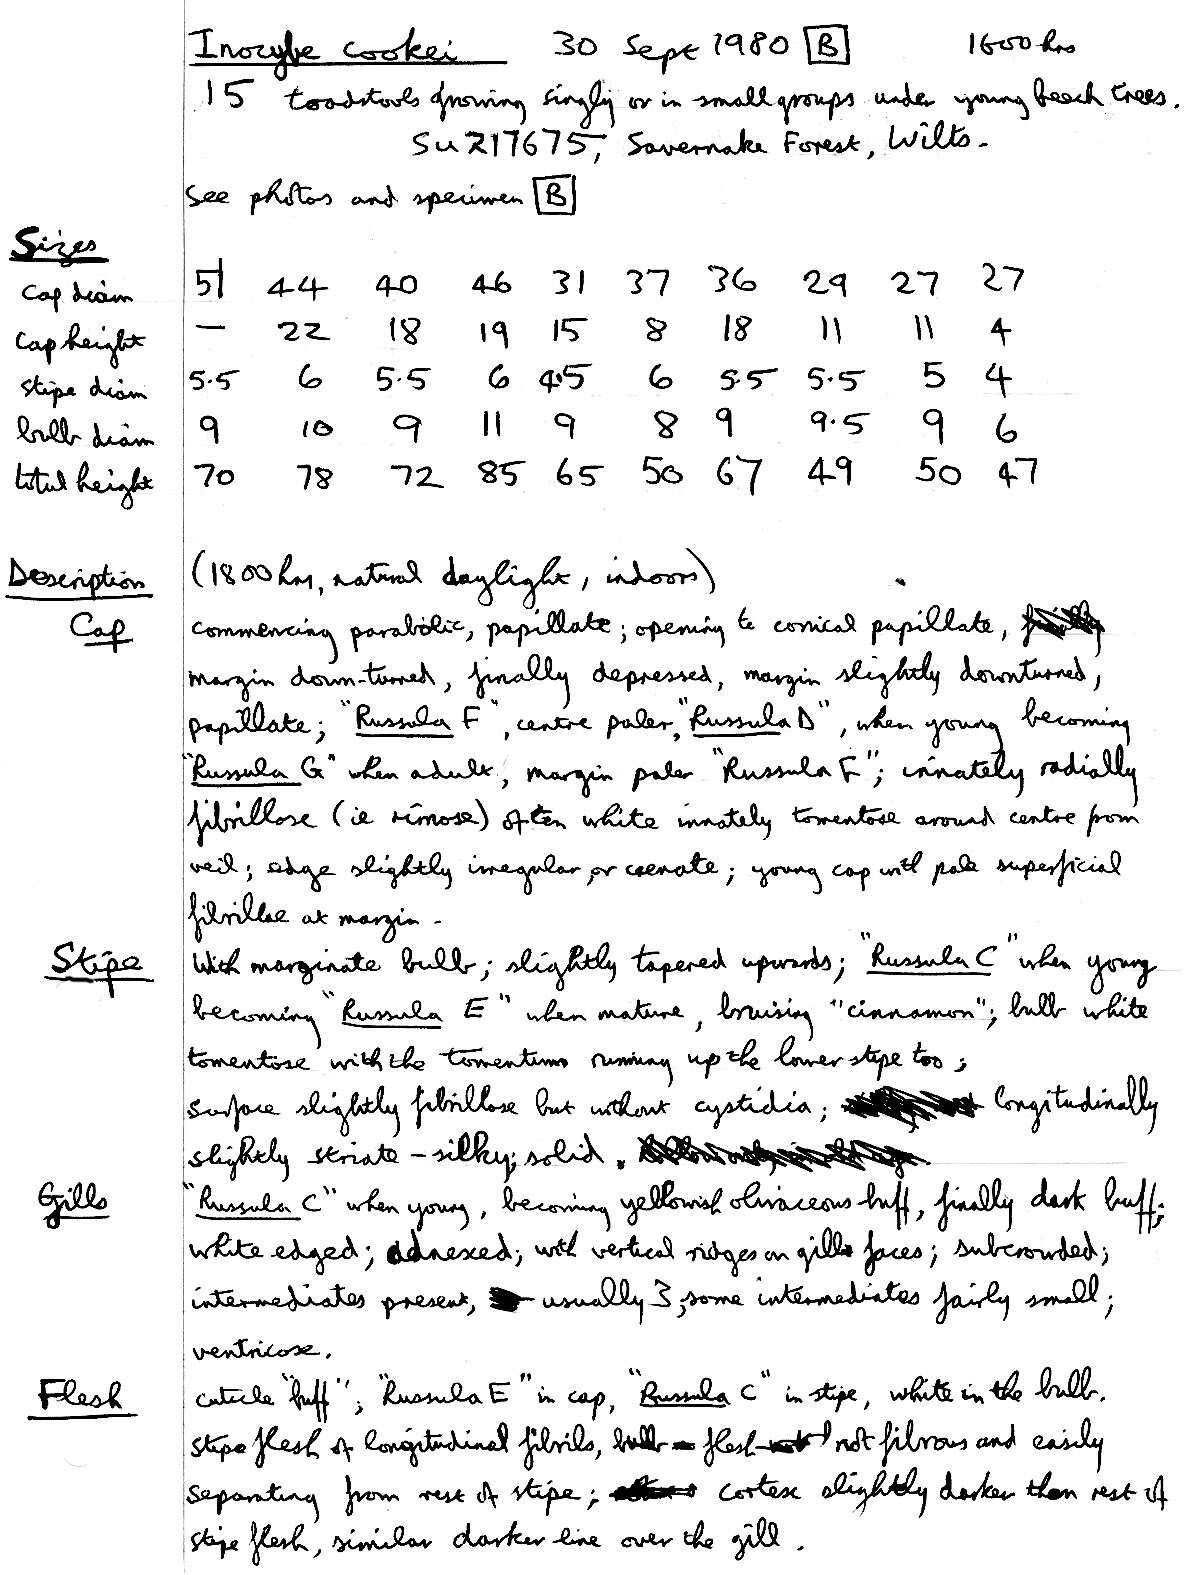 Inocybe cookei 30 Sept 1980 [B] 1600 hrs
15 toadstools growing singly or in small groups under young beech trees.
SU 217675, Savernake Forest, Wilts.
See photos and specimen [B]
Sizes
Cap diam 51 44 40 46 31 37 36 29 27 27
Cap height — 22 18 19 15 8 18 11 11 4
Stipe diam 5.5 6 5.5 6 4.5 6 5.5 5.5 5 4
bulb diam 9 10 9 11 9 8 9 9.5 9 6
total height 70 78 72 85 65 50 67 49 50 47
Description (1800 hrs, natural daylight, indoors)
Cap commencing parabolic, papillate; opening to conical papillate,
margin down-turned, finally depressed, margin slightly downturned,
papillate; "Russula F", centre paler, "Russula D", when young becoming
"Russula G" when adult, margin paler "Russula F"; innately radially
fibrillose (ie rimose) often white innately tomentose around centre from
veil; edge slightly irregular, or crenate; young cap with pale superficial
fibrillae at margin -
Stipe With marginate bulb; slightly tapered upwards; "Russula C" when young
becoming "Russula E" when mature, bruising "cinnamon"; bulb white
tomentose with the tomentum running up the lower stipe too;
Surface slightly fibrillose but without cystidia; longitudinally
slightly striate - silky; solid.
Gills "Russula C" when young, becoming yellowish olivaceous buff, finally dark buff;
white edged; adnexed; with vertical ridges on gill faces; subcrowded;
intermediates present, usually 3, some intermediates fairly small;
ventricose.
Flesh cuticle "buff"; "Russula E" in cap, "Russula C" in stipe, white in the bulb.
Stipe flesh of longitudinal fibrils, bulb flesh not fibrous and easily
separating from rest of stipe; cortex slightly darker than rest of
stipe flesh, similar darker line over the gill.